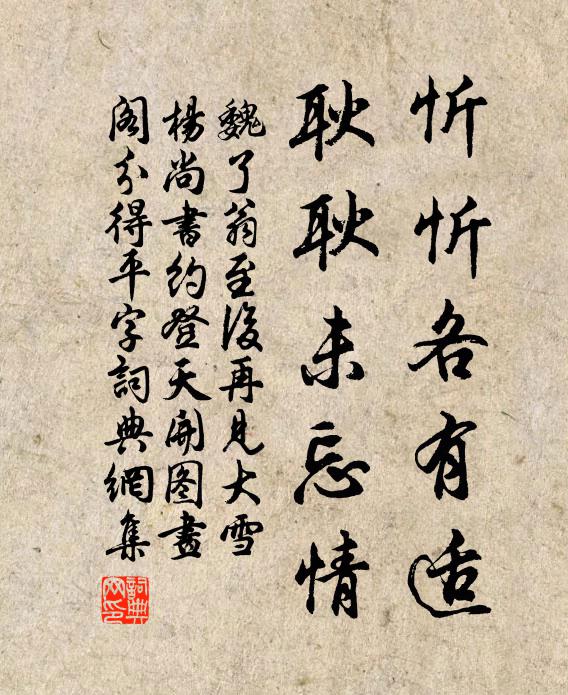 忻忻各有适
耿耿未忘情
魏了翁至後再見大雪
楊尚書約登天開图畫
阁分得平字詞典網集
詞典网印